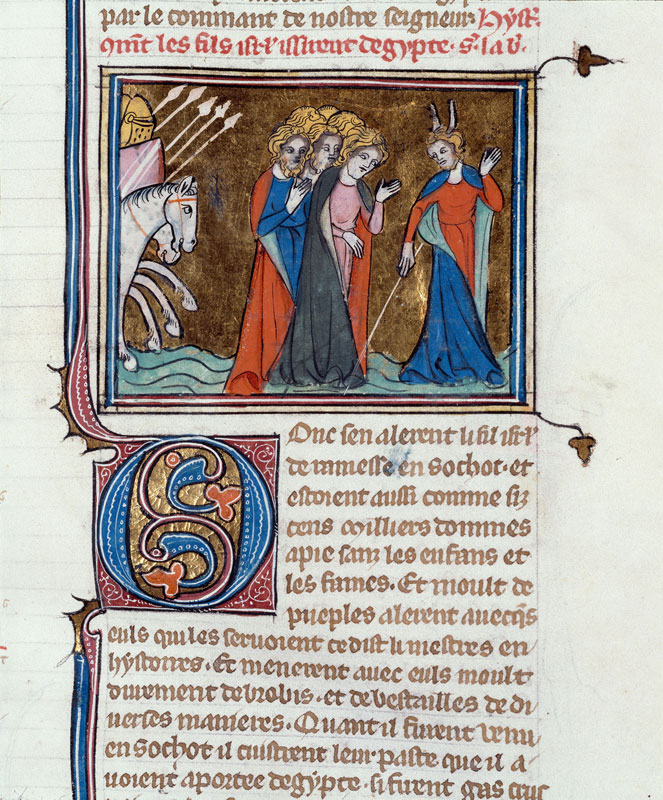 par le commant de nostre seigneur. Hyst'.
9m̄t les fils isr̄l issirent degypte. S. la b.
Donc sen alerent li fil isr̄l
de ramesse en Sochot. et
estoient aussi comme siz
cens milliers dommes
a pie sanz les enfans et
les fames. Et moult de
pueples alerent auecq̄s
euls qui les seruoient ce dist li mestres en
hystoires. Et menerent auec euls moult
durement de brobis. et de bestailles de di
uerses manieres. Quant il furent venu
en Sochot il cuistrent leur paste que il a
uoient aportee degypte. si firent